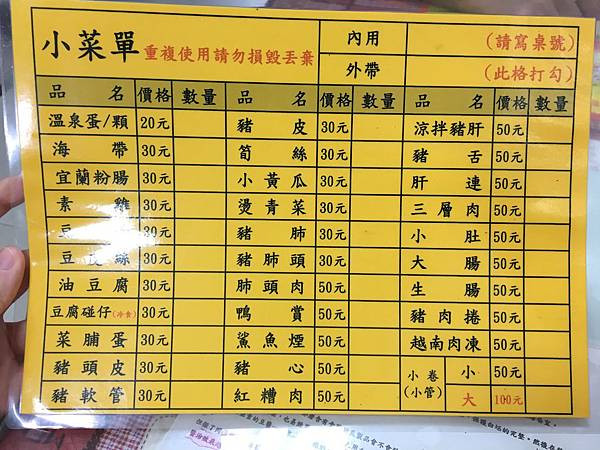 小菜單 重複使用請勿損毀丟棄 內用 (請寫桌號)
外帶 (此格打勾)
品名 價格 數量 品名 價格 數量 品名 價格 數量
溫泉蛋/顆 20元 豬皮 30元 涼拌豬肝 50元
海帶 30元 筍絲 30元 豬舌 50元
宜蘭粉腸 30元 小黃瓜 30元 肝連 50元
素雞 30元 燙青菜 30元 三層肉 50元
豆 30元 豬肺 30元 小肚 50元
豆 絲 30元 豬肺頭 30元 大腸 50元
油豆腐 30元 肺頭肉 50元 生腸 50元
豆腐碰仔(冷食) 30元 鴨賞 50元 豬肉捲 50元
菜脯蛋 30元 鯊魚煙 50元 越南肉凍 50元
豬頭皮 30元 豬心 50元 小卷(小管) 小 50元
豬軟管 30元 紅糟肉 50元 大 100元